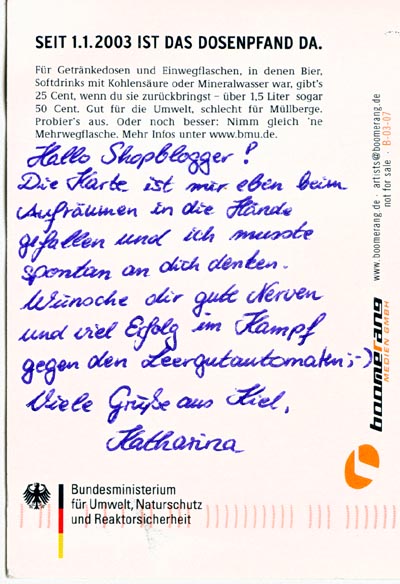 SEIT 1.1.2003 IST DAS DOSENPFAND DA.
Für Getränkedosen und Einwegflaschen, in denen Bier,
Softdrinks mit Kohlensäure oder Mineralwasser war, gibt's
25 Cent, wenn du sie zurückbringst – über 1,5 Liter sogar
50 Cent. Gut für die Umwelt, schlecht für Müllberge.
Probier's aus. Oder noch besser: Nimm gleich 'ne
Mehrwegflasche. Mehr Infos unter www.bmu.de.
Hallo Shopblogger!
Die Karte ist mir eben beim
Aufräumen in die Hände
gefallen und ich musste
spontan an dich denken.
Wünsche dir gute Nerven
und viel Erfolg im Kampf
gegen den Leergutautomaten ;-)
Viele Grüße aus Kiel,
Katharina
Bundesministerium
für Umwelt, Naturschutz
und Reaktorsicherheit
www.boomerang.de · artists@boomerang.de
not for sale · B-03-07
boomerang
MEDIEN GMBH